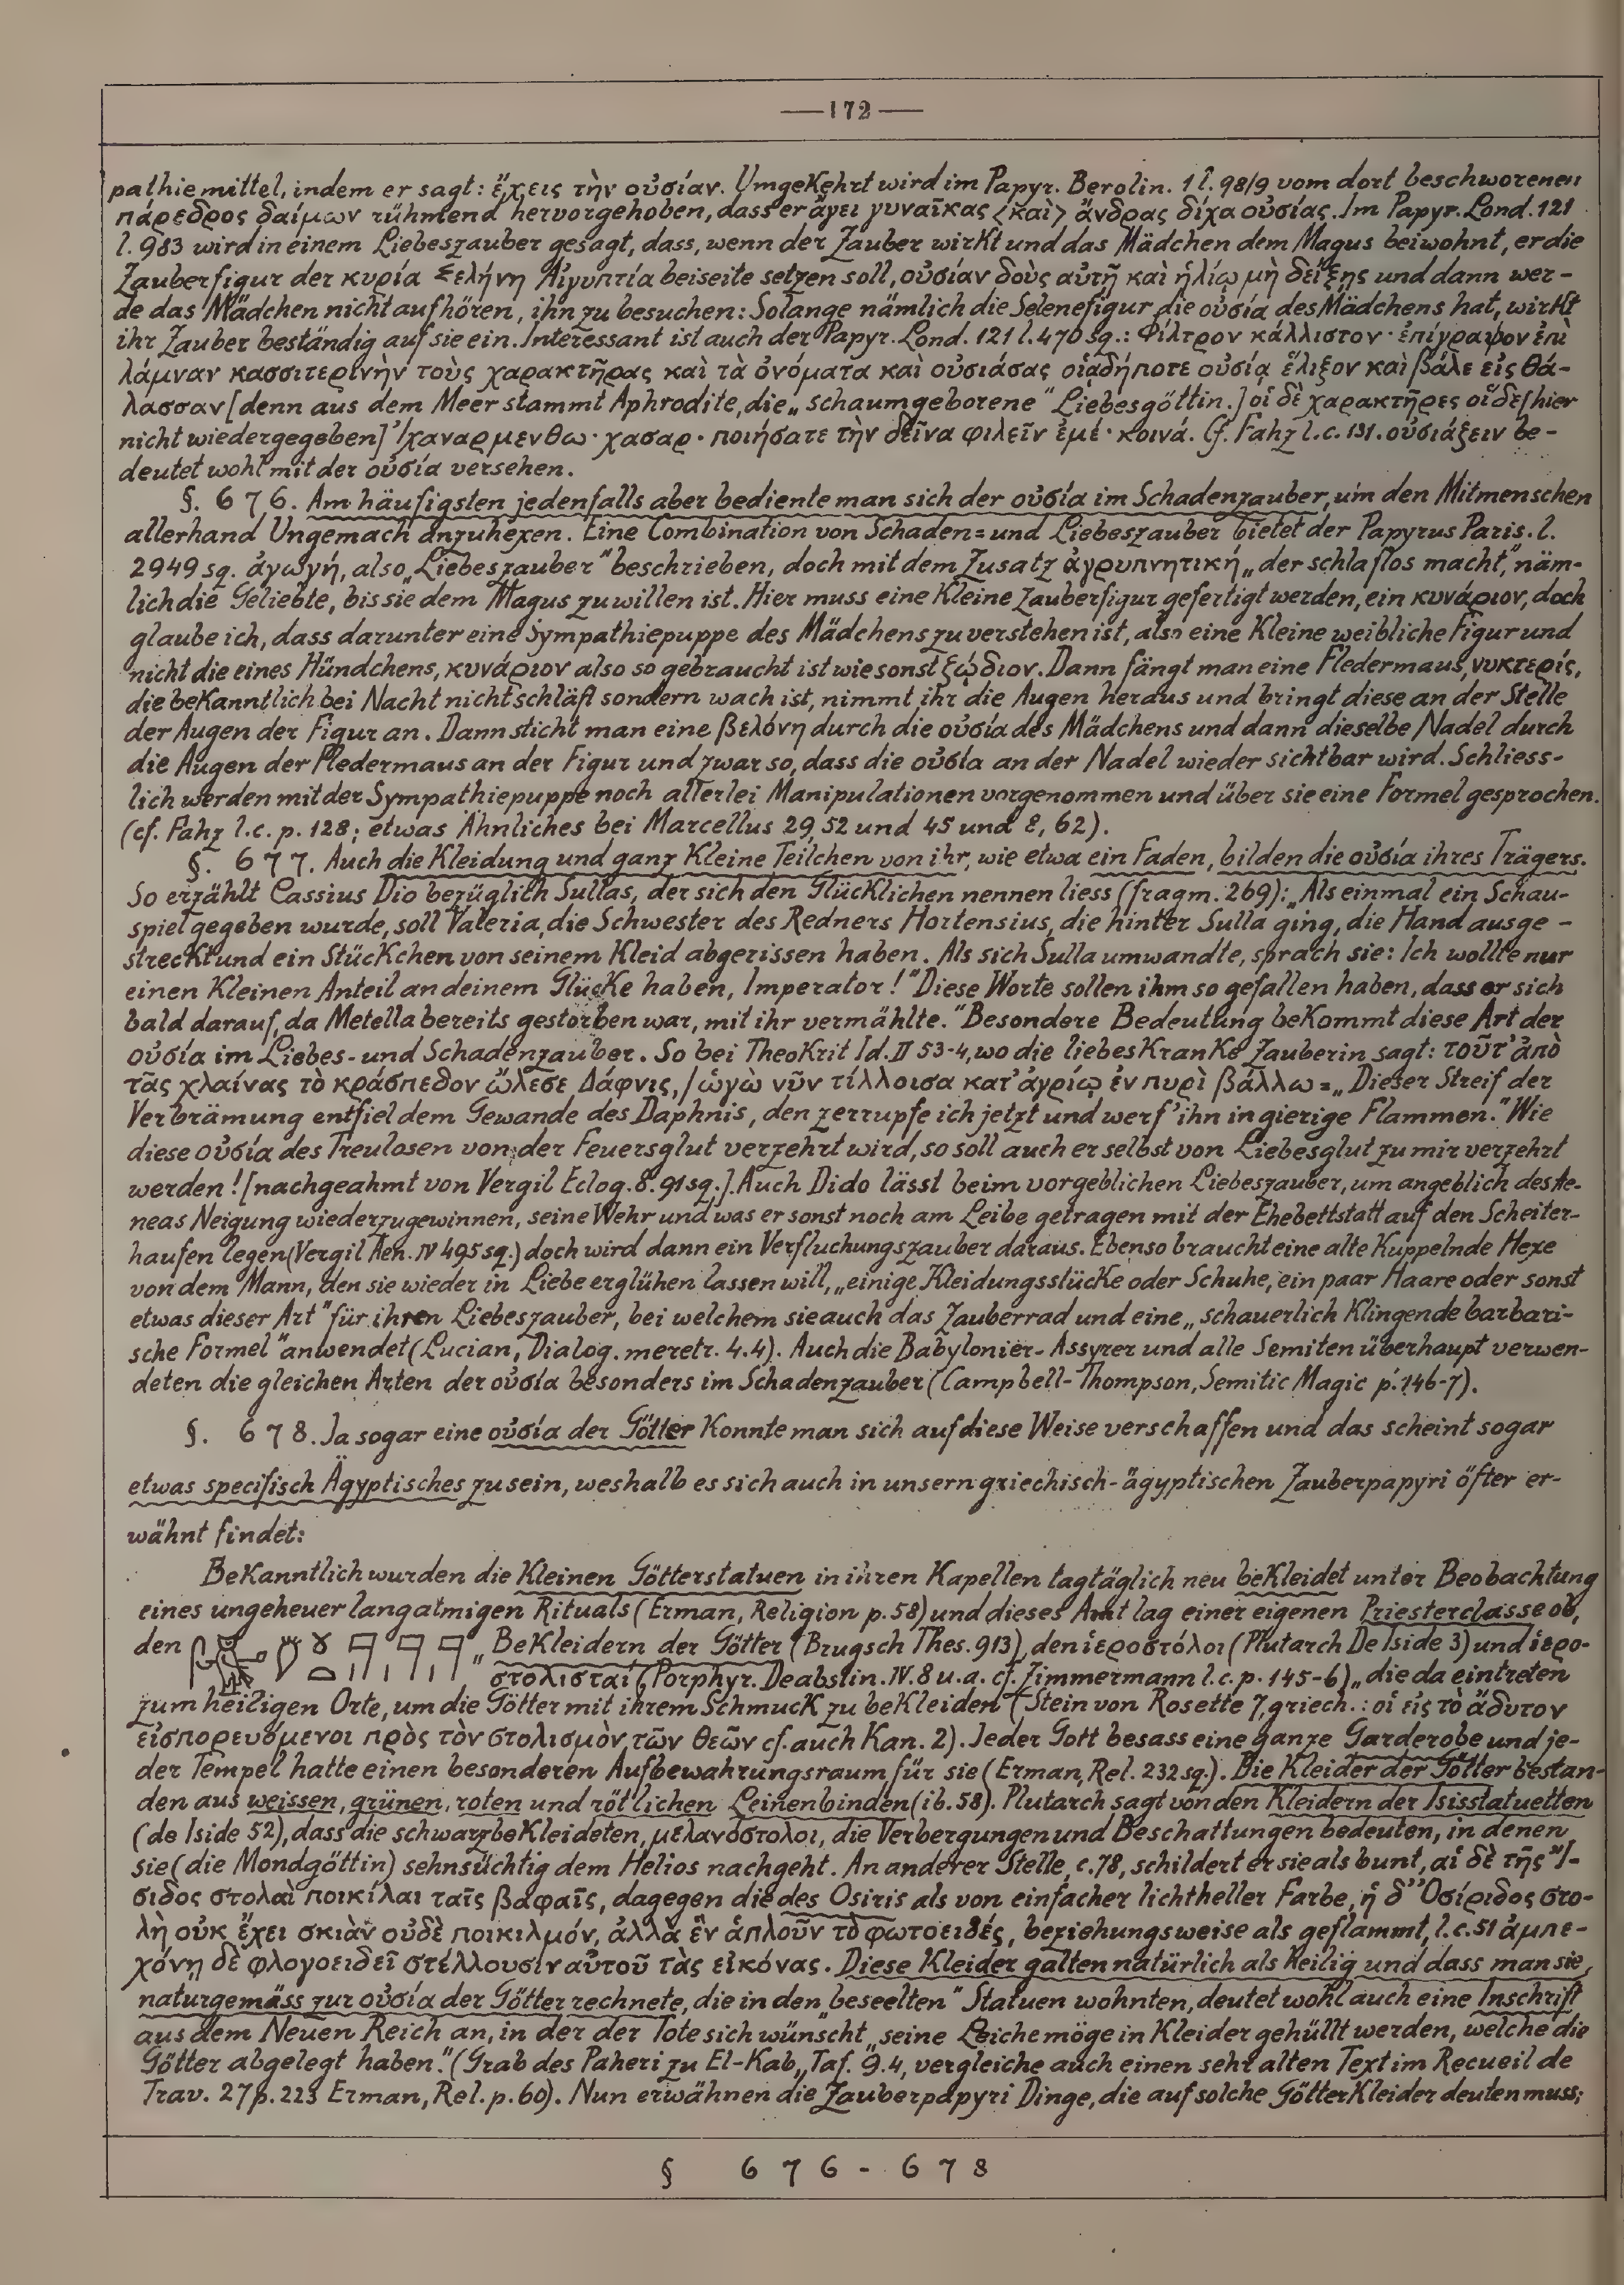 —172—
pathiemittel, indem er sagt: ἔχεις τὴν οὐσίαν. Umgekehrt wird im Papyr. Berolin. 1 l. 98/9 vom dort beschworenen
πάρεδρος δαίμων rühmend hervorgehoben, dass er ἄγει γυναῖκας <καὶ> ἄνδρας δίχα οὐσίας. Im Papyr. Lond. 121
l. 983 wird in einem Liebeszauber gesagt, dass, wenn der Zauber wirkt und das Mädchen dem Magus beiwohnt, er die
Zauberfigur der κυρία Σελήνη Αἰγυπτία beiseite setzen soll, οὐσίαν δοὺς αὐτῇ καὶ ἡλίῳ μὴ δείξῃς und dann wer-
de das Mädchen nicht aufhören, ihn zu besuchen: Solange nämlich die Selenefigur die οὐσία des Mädchens hat, wirkt
ihr Zauber beständig auf sie ein. Interessant ist auch der Papyr. Lond. 121 l. 470 sq.: Φίλτρον κάλλιστον· ἐπίγραψον ἐπὶ
λάμναν κασσιτερινὴν τοὺς χαρακτῆρας καὶ τὰ ὀνόματα καὶ οὐσιάσας οἱᾳδήποτε οὐσίᾳ ἕλιξον καὶ βάλε εἰς θά-
λασσαν [denn aus dem Meer stammt Aphrodite, die „schaumgeborene" Liebesgöttin.] οἱ δὲ χαρακτῆρες οἵδε [hier
nicht wiedergegeben] 'Ιχαναρμενθω· χασαρ· ποιήσατε τὴν δεῖνα φιλεῖν ἐμέ· κοινά. Cf. Fahz l.c. 131. οὐσιάζειν be-
deutet wohl mit der οὐσία versehen.
§. 676. Am häufigsten jedenfalls aber bediente man sich der οὐσία im Schadenzauber, um den Mitmenschen
allerhand Ungemach anzuhexen. Eine Combination von Schaden= und Liebeszauber bietet der Papyrus Paris. l.
2949 sq. ἀγωγή, also „Liebeszauber" beschrieben, doch mit dem Zusatz ἀγρυπνητική „der schlaflos macht", näm-
lich die Geliebte, bis sie dem Magus zu willen ist. Hier muss eine kleine Zauberfigur gefertigt werden, ein κυνάριον, doch
glaube ich, dass darunter eine Sympathiepuppe des Mädchens zu verstehen ist, also eine kleine weibliche Figur und
nicht die eines Hündchens, κυνάριον also so gebraucht ist wie sonst ζῴδιον. Dann fängt man eine Fledermaus, νυκτερίς,
die bekanntlich bei Nacht nicht schläft sondern wach ist, nimmt ihr die Augen heraus und bringt diese an der Stelle
der Augen der Figur an. Dann sticht man eine βελόνη durch die οὐσία des Mädchens und dann dieselbe Nadel durch
die Augen der Fledermaus an der Figur und zwar so, dass die οὐσία an der Nadel wieder sichtbar wird. Schliess-
lich werden mit der Sympathiepuppe noch allerlei Manipulationen vorgenommen und über sie eine Formel gesprochen.
(cf. Fahz l.c. p. 128; etwas Ähnliches bei Marcellus 29, 52 und 45 und 8, 62).
§. 677. Auch die Kleidung und ganz kleine Teilchen von ihr, wie etwa ein Faden, bilden die οὐσία ihres Trägers.
So erzählt Cassius Dio bezüglich Sullas, der sich den Glücklichen nennen liess (fragm. 269): „Als einmal ein Schau-
spiel gegeben wurde, soll Valeria, die Schwester des Redners Hortensius, die hinter Sulla ging, die Hand ausge-
streckt und ein Stückchen von seinem Kleid abgerissen haben. Als sich Sulla umwandte, sprach sie: Ich wollte nur
einen kleinen Anteil an deinem Glücke haben, Imperator!" Diese Worte sollen ihm so gefallen haben, dass er sich
bald darauf, da Metella bereits gestorben war, mit ihr vermählte." Besondere Bedeutung bekommt diese Art der
οὐσία im Liebes- und Schadenzauber. So bei Theokrit Id. II 53-4, wo die liebeskranke Zauberin sagt: τοῦτ' ἀπὸ
τᾶς χλαίνας τὸ κράσπεδον ὤλεσε Δάφνις, / ὡγὼ νῦν τίλλοισα κατ' ἀγρίῳ ἐν πυρὶ βάλλω = „Dieser Streif der
Verbrämung entfiel dem Gewande des Daphnis, den zerrupfe ich jetzt und werf' ihn in gierige Flammen." Wie
diese οὐσία des Treulosen von der Feuersglut verzehrt wird, so soll auch er selbst von Liebesglut zu mir verzehrt
werden! [nachgeahmt von Vergil Eclog. 8. 91 sq.]. Auch Dido lässt beim vorgeblichen Liebeszauber, um angeblich des Ae-
neas Neigung wiederzugewinnen, seine Wehr und was er sonst noch am Leibe getragen mit der Ehebettstatt auf den Scheiter-
haufen legen (Vergil Aen. IV 495 sq.) doch wird dann ein Verfluchungszauber daraus. Ebenso braucht eine alte kuppelnde Hexe
von dem Mann, den sie wieder in Liebe erglühen lassen will, „einige Kleidungsstücke oder Schuhe, ein paar Haare oder sonst
etwas dieser Art" für ihren Liebeszauber, bei welchem sie auch das Zauberrad und eine „schauerlich klingende barbari-
sche Formel" anwendet (Lucian, Dialog. meretr. 4.4). Auch die Babylonier-Assyrer und alle Semiten überhaupt verwen-
deten die gleichen Arten der οὐσία besonders im Schadenzauber (Campbell-Thompson, Semitic Magic p. 146-7).
§. 678. Ja sogar eine οὐσία der Götter konnte man sich auf diese Weise verschaffen und das scheint sogar
etwas specifisch Ägyptisches zu sein, weshalb es sich auch in unsern griechisch-ägyptischen Zauberpapyri öfter er-
wähnt findet:
Bekanntlich wurden die kleinen Götterstatuen in ihren Kapellen tagtäglich neu bekleidet unter Beobachtung
eines ungeheuer langatmigen Rituals (Erman, Religion p. 58) und dieses Amt lag einer eigenen Priesterclasse ob,
den „Bekleidern der Götter (Brugsch Thes. 913), den ἱεροστόλοι (Plutarch De Iside 3) und ἱερο-
στολισταί (Porphyr. De abstin. IV. 8 u.a. cf. Zimmermann l.c. p. 145-6) „die da eintreten
zum heiligen Orte, um die Götter mit ihrem Schmuck zu bekleiden (Stein von Rosette 7, griech.: οἱ εἰς τὸ ἄδυτον
εἰσπορευόμενοι πρὸς τὸν στολισμὸν τῶν θεῶν cf. auch Kan. 2). Jeder Gott besass eine ganze Garderobe und je-
der Tempel hatte einen besonderen Aufbewahrungsraum für sie (Erman, Rel. 232 sq.). Die Kleider der Götter bestan-
den aus weissen, grünen, roten und rötlichen Leinenbinden (ib. 58). Plutarch sagt von den Kleidern der Isisstatuetten
(de Iside 52), dass die schwarzbekleideten, μελανόστολοι, die Verbergungen und Beschattungen bedeuten, in denen
sie (die Mondgöttin) sehnsüchtig dem Helios nachgeht. An anderer Stelle, c. 78, schildert er sie als bunt, αἱ δὲ τῆς Ἴ-
σιδος στολαὶ ποικίλαι ταῖς βαφαῖς, dagegen die des Osiris als von einfacher lichtheller Farbe, ἡ δ' Ὀσίριδος στο-
λὴ οὐκ ἔχει σκιὰν οὐδὲ ποικιλμόν, ἀλλὰ ἓν ἁπλοῦν τὸ φωτοειδές, beziehungsweise als geflammt, l.c. 51 ἀμπε-
χόνῃ δὲ φλογοειδεῖ στέλλουσιν αὐτοῦ τὰς εἰκόνας. Diese Kleider galten natürlich als heilig und dass man sie,
naturgemäss zur οὐσία der Götter rechnete, die in den „beseelten" Statuen wohnten, deutet wohl auch eine Inschrift
aus dem Neuen Reich an, in der der Tote sich wünscht „seine Leiche möge in Kleider gehüllt werden, welche die
Götter abgelegt haben." (Grab des Paheri zu El-Kab, Taf. 9. 4, vergleiche auch einen sehr alten Text im Recueil de
Trav. 27 p. 223 Erman, Rel. p. 60). Nun erwähnen die Zauberpapyri Dinge, die auf solche Götterkleider deuten muss;
§ 676-678